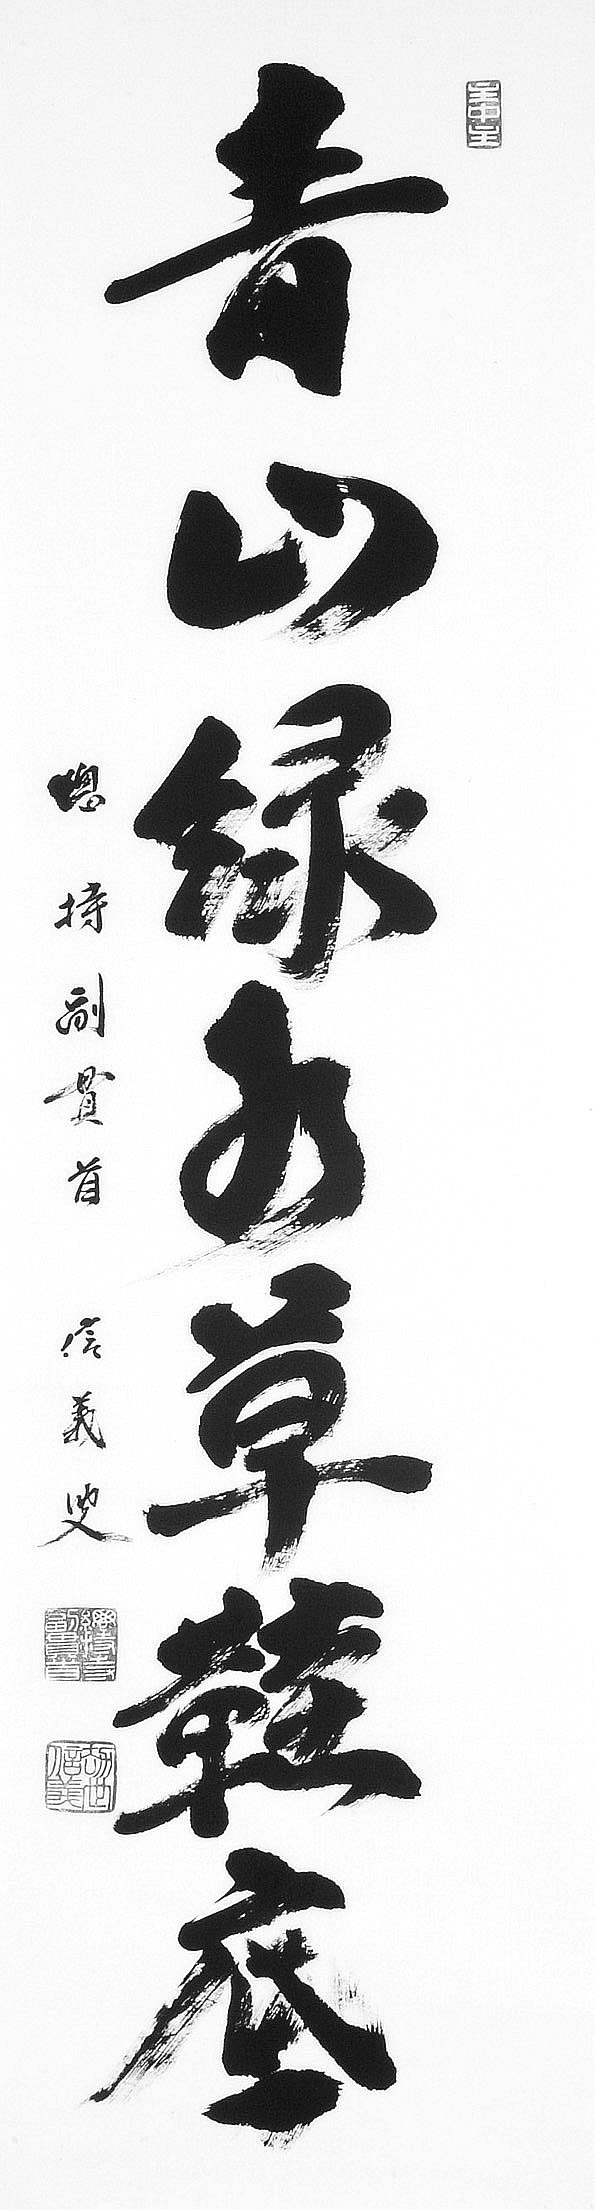 主中主
青山緑水草鞋底
總持副貫首 信義叟